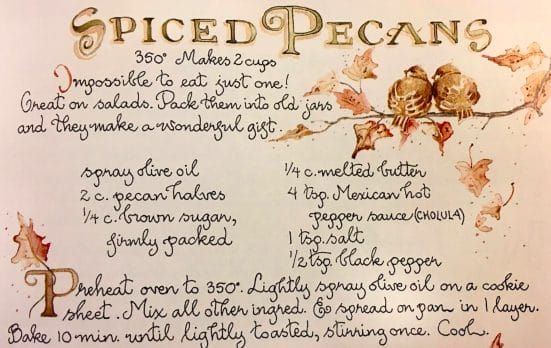 SPICED PECANS
350° Makes 2 cups
Impossible to eat just one!
Great on salads. Pack them into old jars
and they make a wonderful gift.
spray olive oil
2 c. pecan halves
1/4 c. brown sugar,
firmly packed
1/4 c. melted butter
4 tsp. Mexican hot
pepper sauce (CHOLULA)
1 tsp. salt
1/2 tsp. black pepper
Preheat oven to 350°. Lightly spray olive oil on a cookie
sheet. Mix all other ingred. & spread on pan in 1 layer.
Bake 10 min. until lightly toasted, stirring once. Cool.